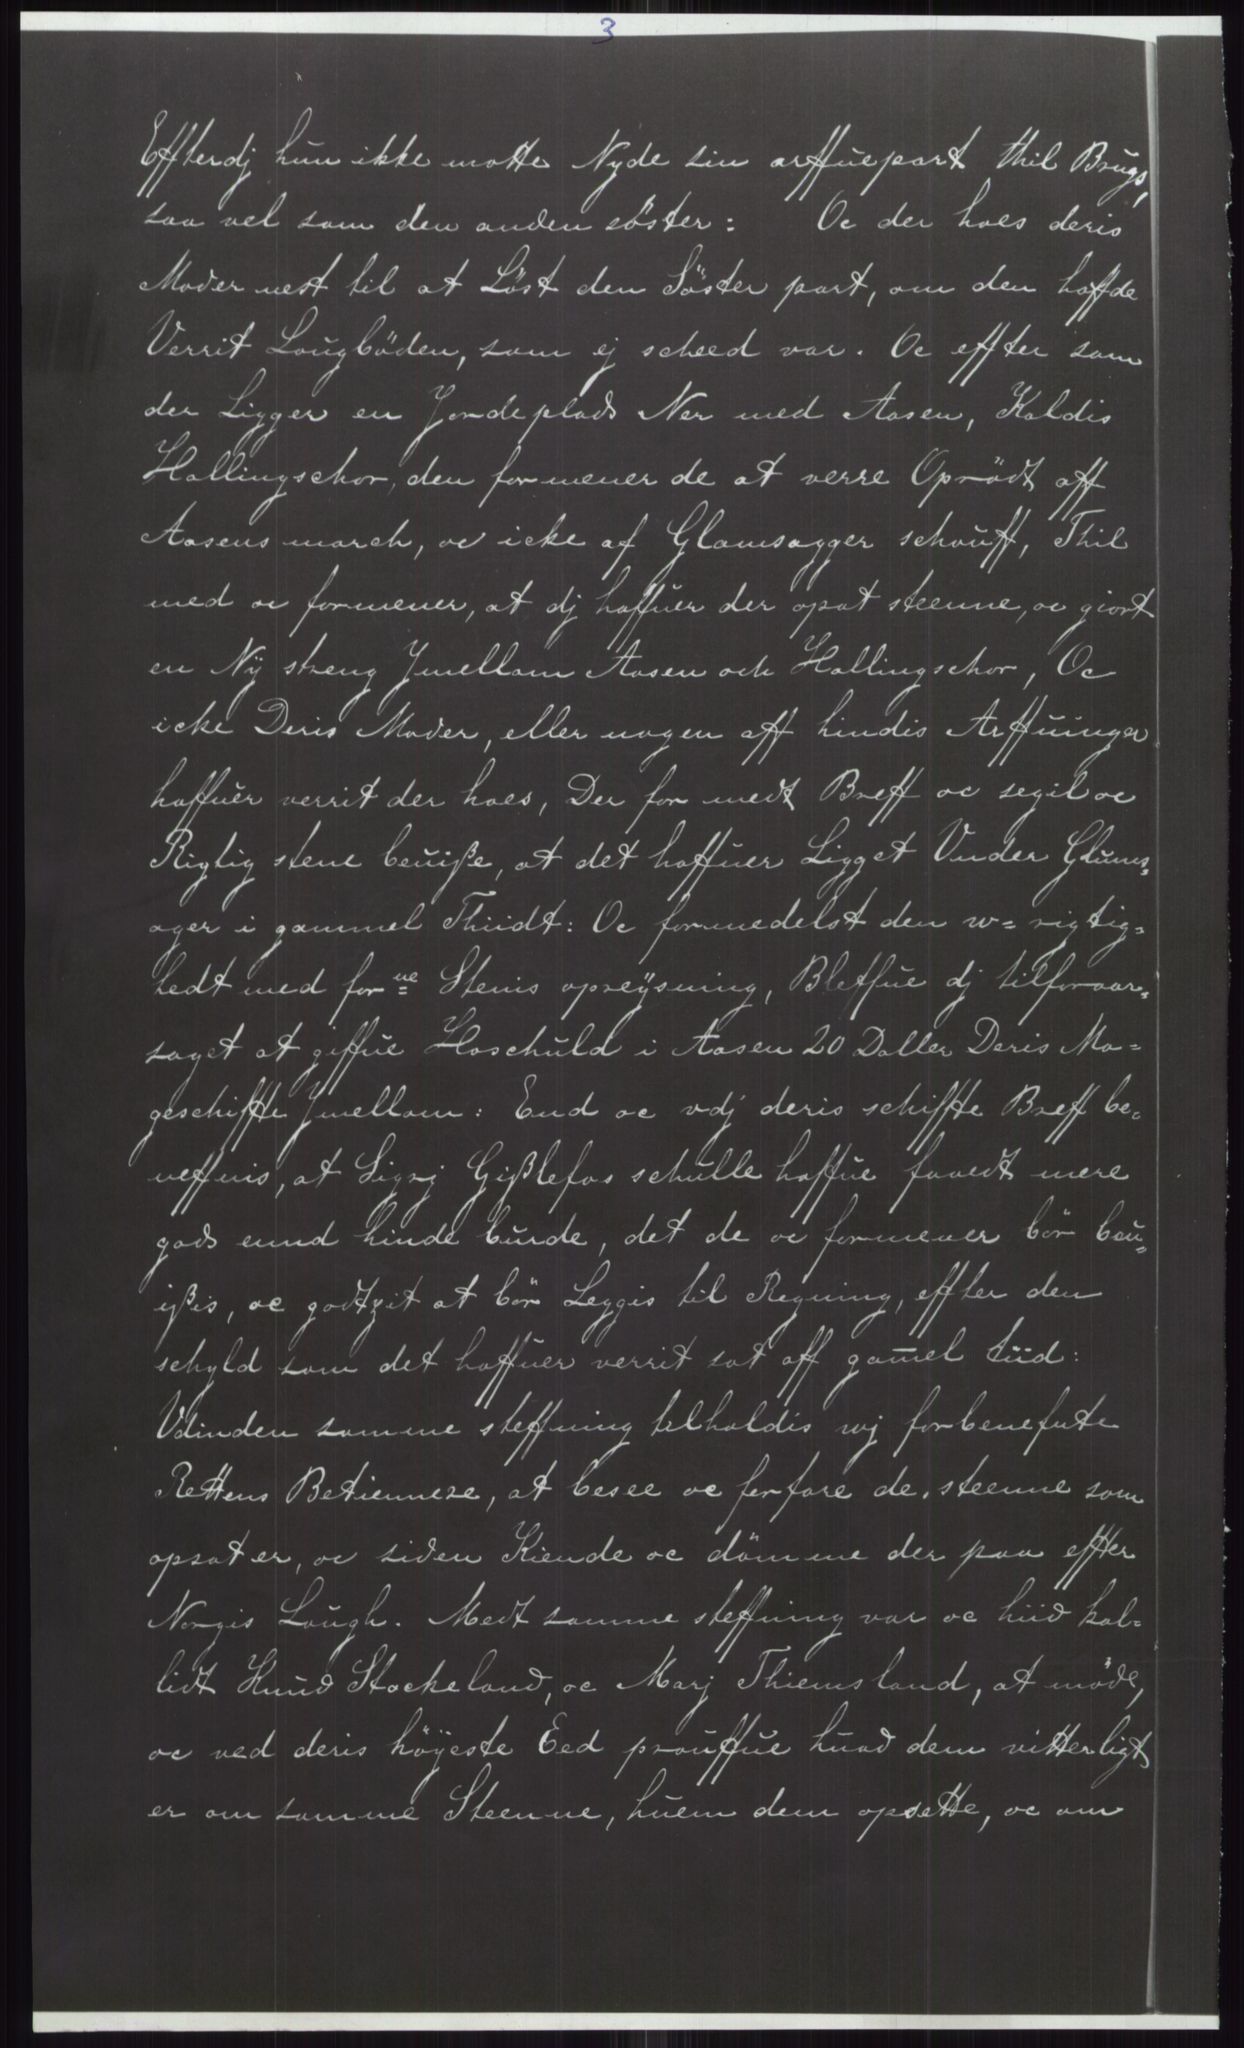 3
Effterdj hun ikke motte Nyde sin arffuepart thil Brugs,
saa vel som den anden söster: Oc der hoes deris
Moder nest til at Löst den Söster part, om den haffde
Verrit Lougböden, som ej scheed var. Oc effter som
der Ligger en Jordeplads Ner med Aasen, Kaldis
Hallingschor, den formener de at verre Oprödt aff
Aasens march, oc icke af Glamsagger schouff, Thil
med oc formener, at dj haffuer der opat steenne, oc giort
en Nÿ streng Jmellom Aasen och Hallingschor, Oc
icke Deris Moder, eller nogen aff hindis Arffuinger
haffuer verrit der hoes, Der for medt Breff oc segil oc
Rigtig stene beuiße, at det haffuer Ligget Vnder Glums-
ager i gammel Thiidt: Oc formedelst den w=rigtig=
hedt med forne Stenis opreÿsning, Bleffue dj tilforaar=
saget at giffue Haschuld i Aasen 20 Daller Deris Ma=
geschiffte Jmellom: End oc vdj deris schiffte Breff be-
neffnis, at Sigrj Gißlefos schulle haffue faaedt mere
gods ennd hinde burde, det de oc formener bör beu=
ißis, oc godtzit at bör Leggis til Regning, effter den
schyld som det haffuer verrit sat aff gam̄el tiid:
Vdinden samme steffning tilholdis wj forbenefnte
Rettens Betiennere, at besee oc forfare de steenne som
opsat er, oc siden Kiende oc dömme der paa effter
Norgis Lough. Medt samme steffning var oc hiid kal-
lidt Knud Stockeland, oc Marj Thiemsland, at möde,
oc ved deris höÿeste Eed prouffue huad dem vitterligt
er om samme Steenne, huem dem opsette, oc om